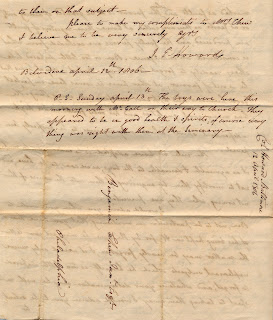 to them on that subject
Please to make my compliments to Mrs Chew
& believe me to be very sincerely yrs
J. E. Howard
Belvidere April 12th 1806
P.S. Sunday April 13th The boys were here this
morning with Mr on their way to church. They
appeared to be in good health & spirits, of course every
thing was right with them at the Seminary.
Col Howard Baltimore
12 April 1806
Benjamin Chew Junr Esqr
Philadelphia